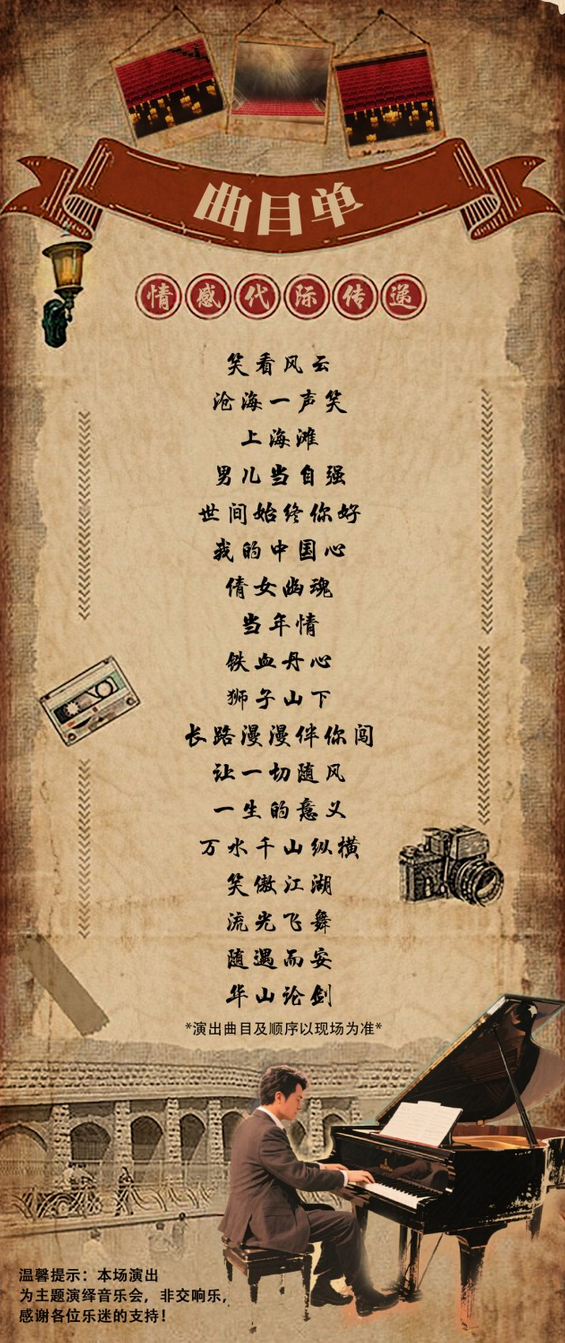 曲目单
情感代际传递
笑看风云
沧海一声笑
上海滩
男儿当自强
世间始终你好
我的中国心
倩女幽魂
当年情
铁血丹心
狮子山下
长路漫漫伴你闯
让一切随风
一生的意义
万水千山纵横
笑傲江湖
流光飞舞
随遇而安
华山论剑
*演出曲目及顺序以现场为准*
温馨提示：本场演出
为主题演绎音乐会，非交响乐，
感谢各位乐迷的支持！